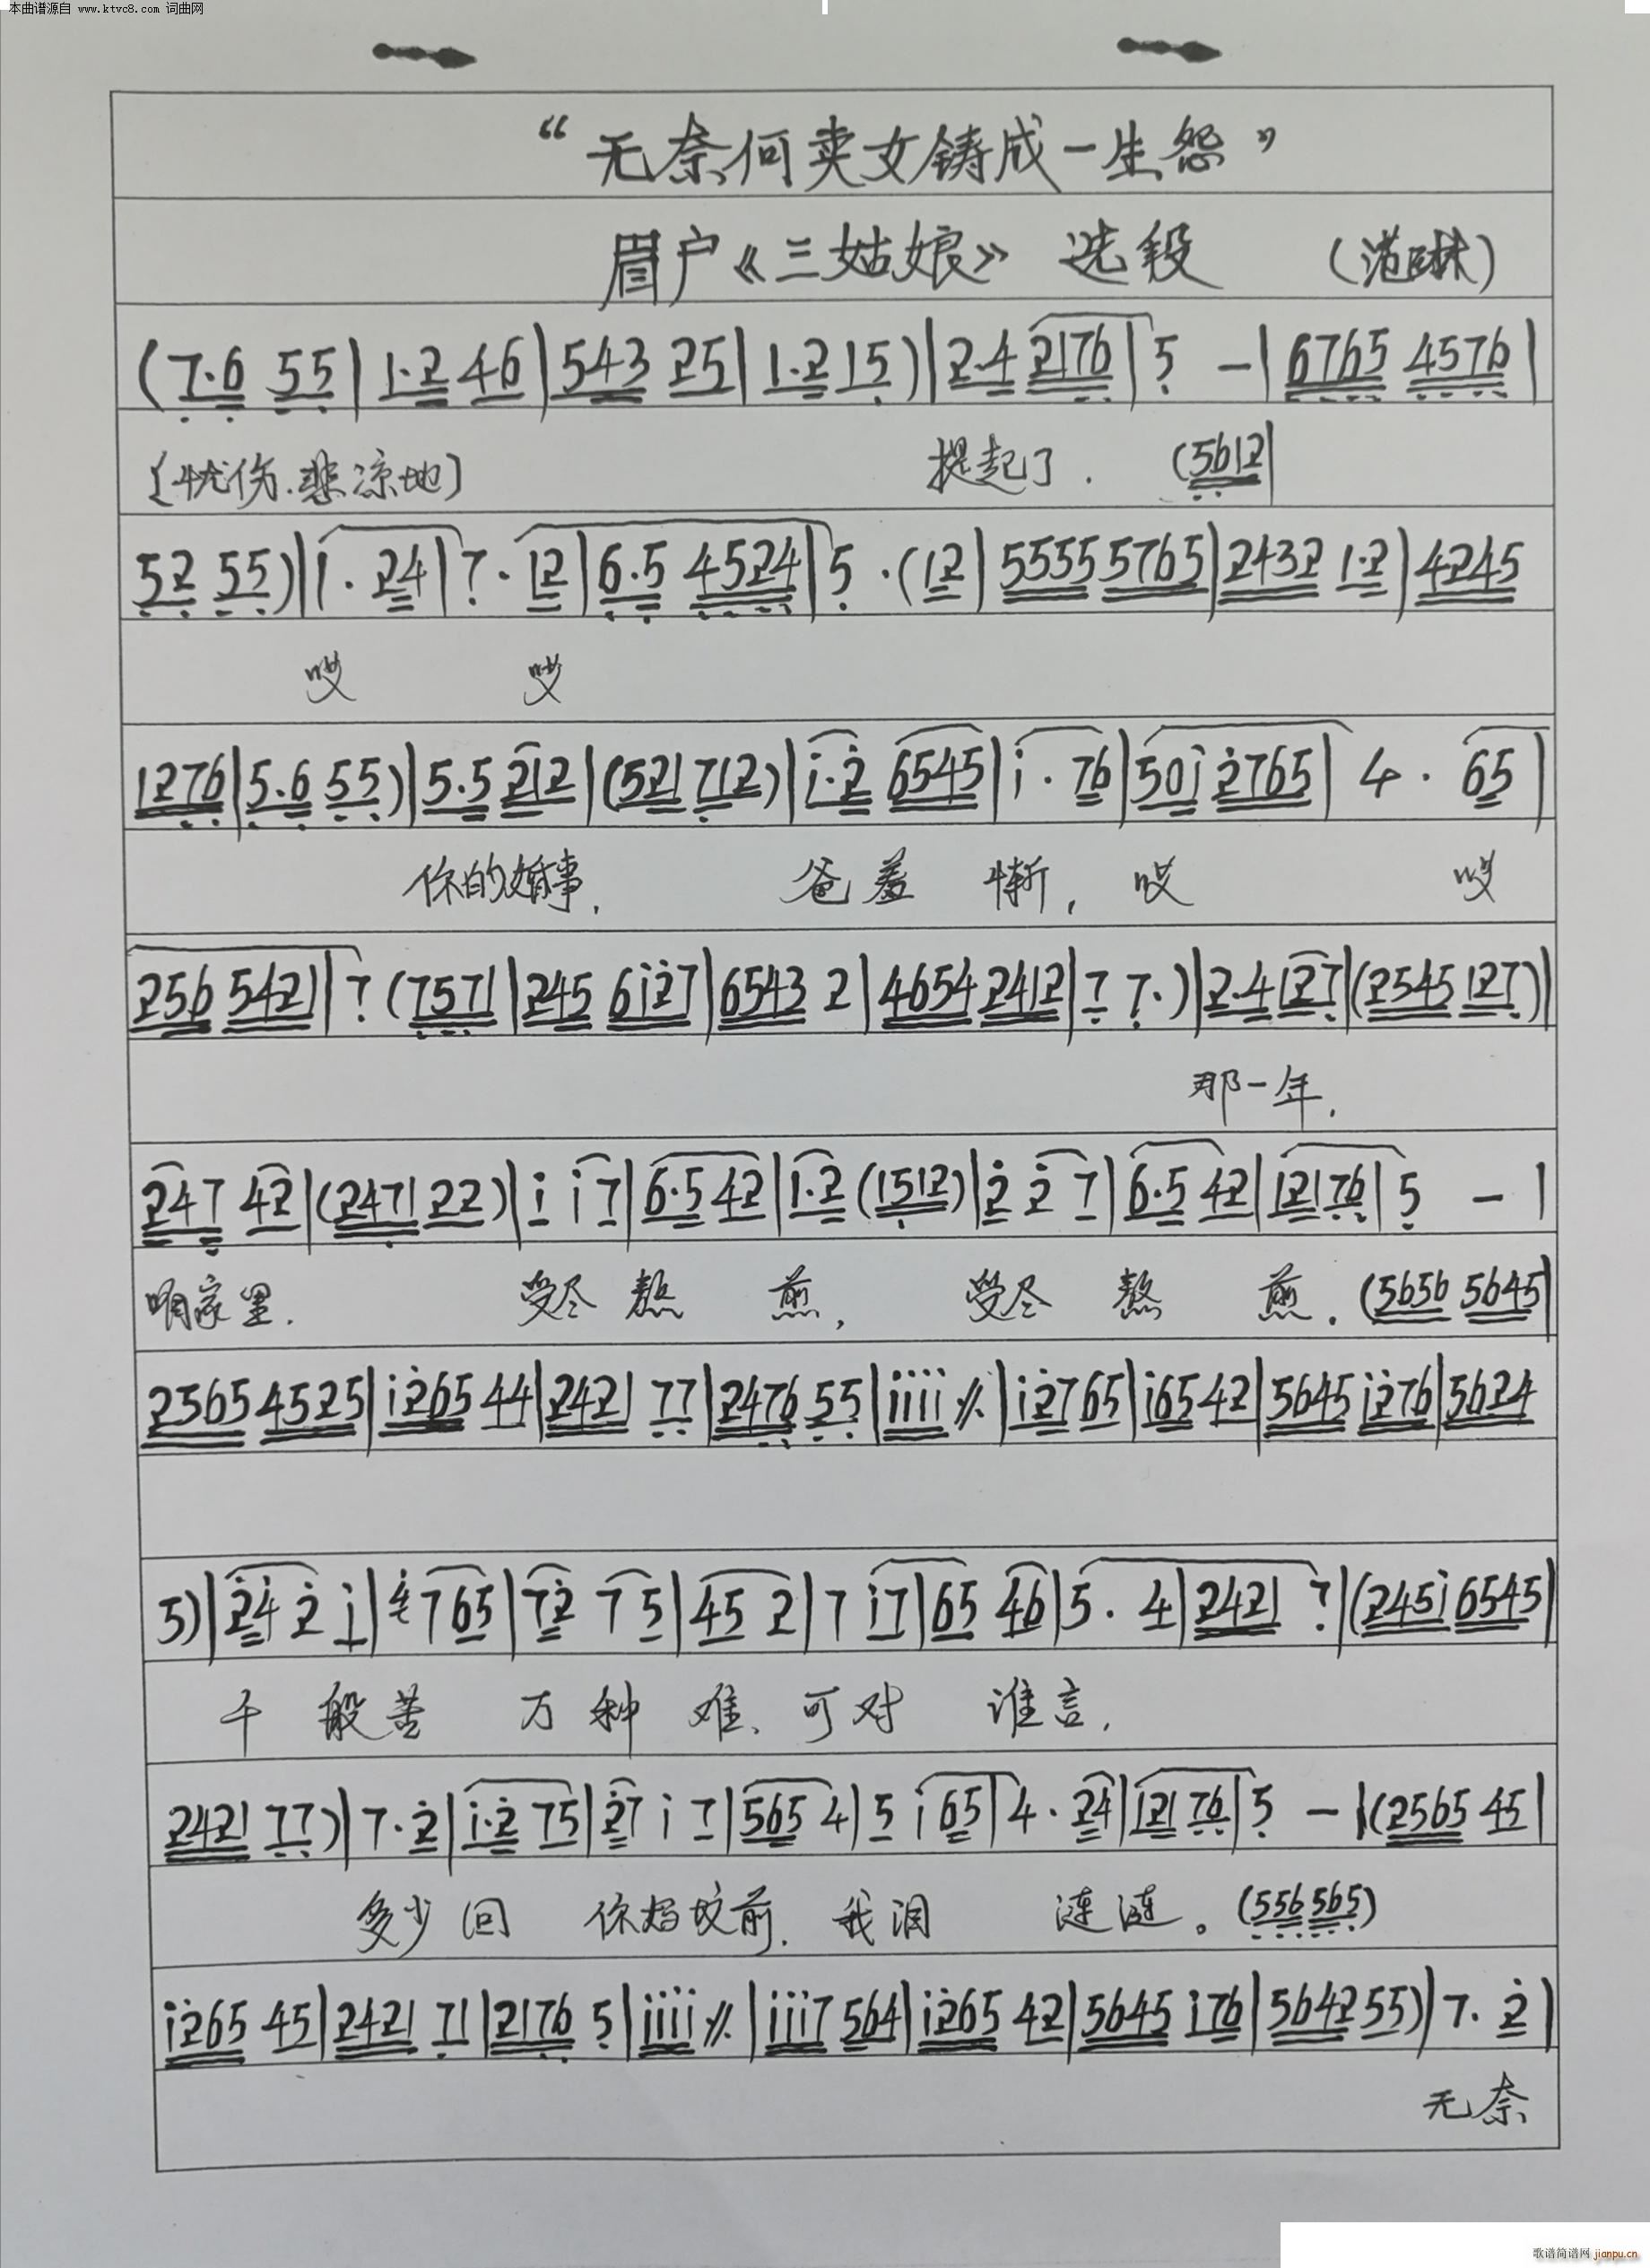 本曲谱源自 www.ktvc8.com 词曲网
“无奈何卖女铸成一生怨”
眉户《三姑娘》选段 (范琳)
(7·6 55|1·2 46|543 25|1·2 15)|2·4 2176|5 -|6765 4576|
〔忧伤.悲凉地〕 提起了. (5612|
52 55)|1·24|7·12|6·5 4524|5·(12|5555 5765|2432 1·2|4245
哎 哎
1276|5·6 55)|5·5 212|(521 712)|i·2 6545|i·76|50i 2765|4·65|
你的婚事, 爸羞惭, 哎 哎
256 5421|7 (7571|245 6i27|6543 2|4654 2412|7 7·)|2·4 127|(2545 127)|
那一年,
247 42|(2471 22)|i i7|6·5 42|1·2 (1512)|2 2 7|6·5 42|12176|5 -|
咱家里. 受尽熬煎, 受尽熬煎. (5656 5645|
2565 4525|i265 44|2421 77|2476 55|iiii ⁒|i2765|i6542|5645 i276|5624
5)|24 2 i|4 7 65|72 7 5|45 2|7 i7|65 46|5·4|2421 7|(245i 6545|
千般苦 万种难、可对谁言,
2421 77)|7·2|i·2 75|27 i 7|565 4|5 i 65|4·24|121 76|5 -|(2565 45|
多少回 你妈坟前, 我泪涟涟。(556 565)
i265 45|2421 71|2176 5|iiii ⁒|iii7 564|i265 42|5645 i76|5642 55)|7·2|
无奈
歌谱简谱网 jianpu.cn